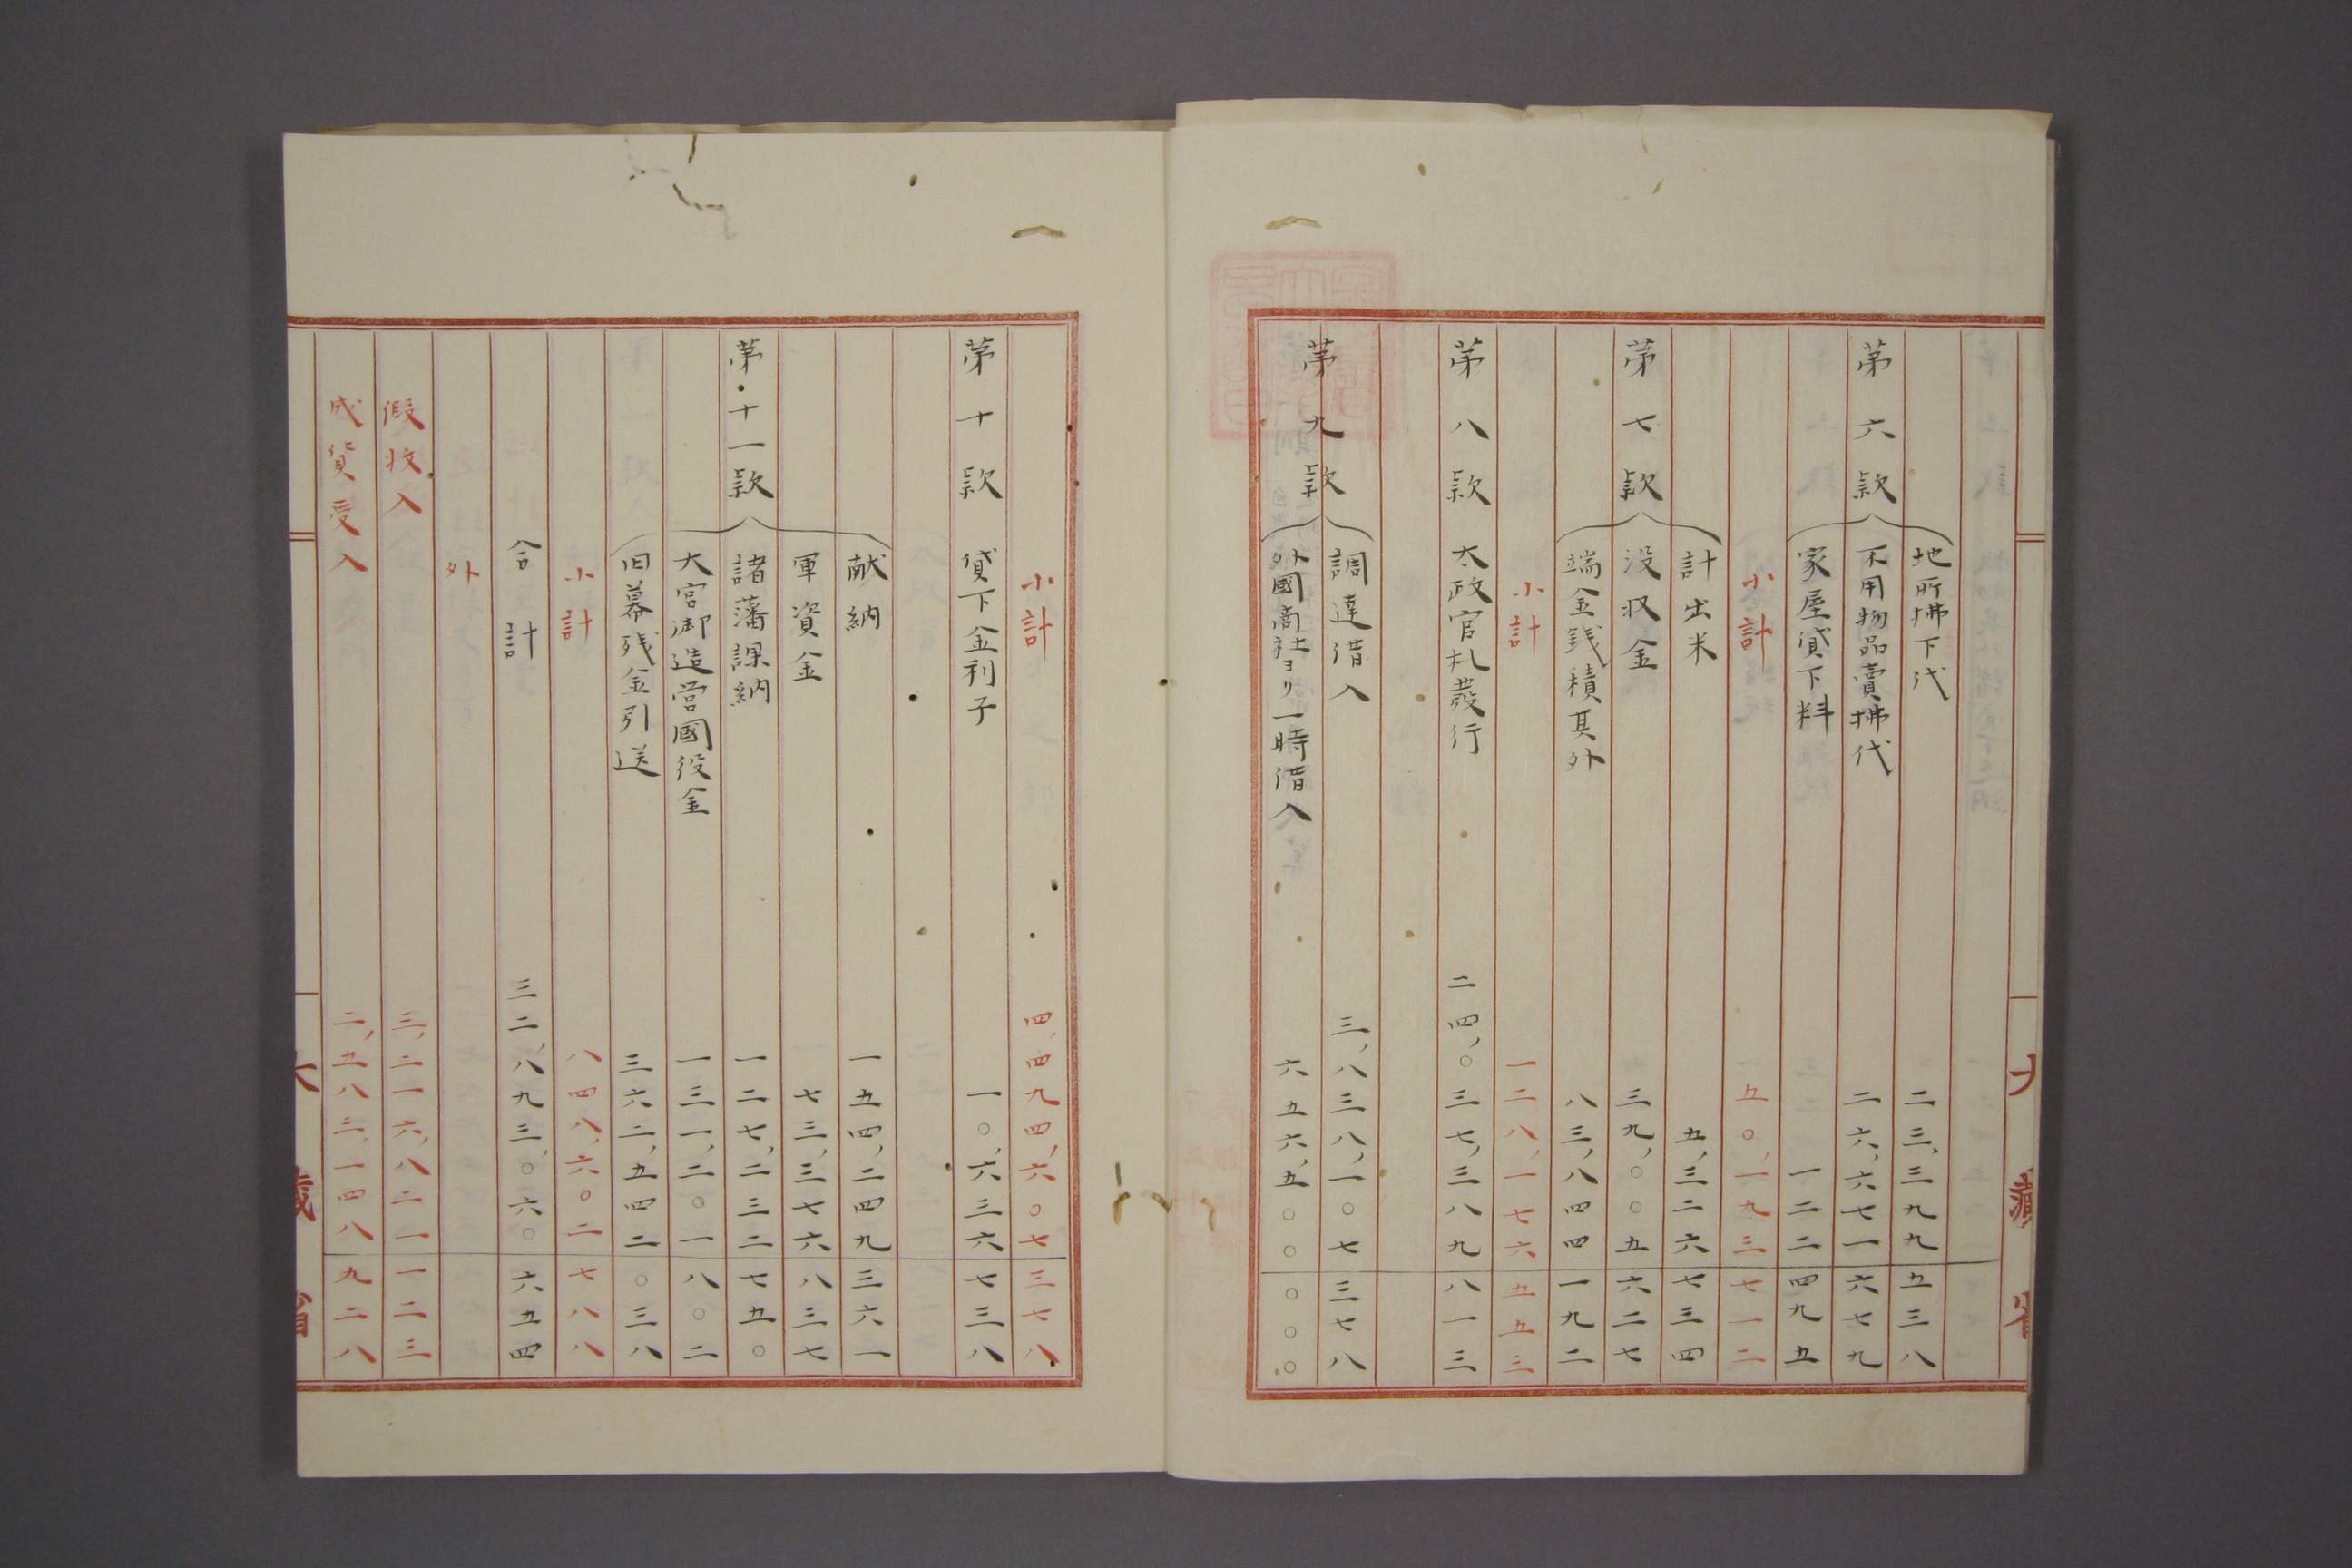 地所拂下代 二三、三九九 五三八
第六款 不用物品賣拂代 二六、六七一 六七九
家屋貸下料 一二二 四九五
小計 五〇、一九三 七一二
計出米 五、三二六 七三四
第七款 没収金 三九、〇〇五 六二七
端金銭積其外 八三、八四四 一九二
小計 一二八、一七六 五五三
第八款 太政官札發行 二四、〇三七、三八九 八一三
第九款 調達借入 三、八三八、一〇七 三七八
外國商社ヨリ一時借入 六五六、五〇〇 〇〇〇
小計 四、四九四、六〇七 三七八
第十款 貸下金利子 一〇、六三六 七三八
献納 一五四、二四九 三六一
軍資金 七三、三七六 八三七
第十一款 諸藩課納 一二七、二三二 七五〇
大宮御造営國役金 一三一、二〇一 八〇二
旧幕残金引送 三六二、五四二 〇三八
小計 八四八、六〇二 七八八
合計 三二、八九三、〇六〇 六五四
外
假收入 三、二一六、八二一 一二三
成貨受入 二、五八三、一四八 九二八